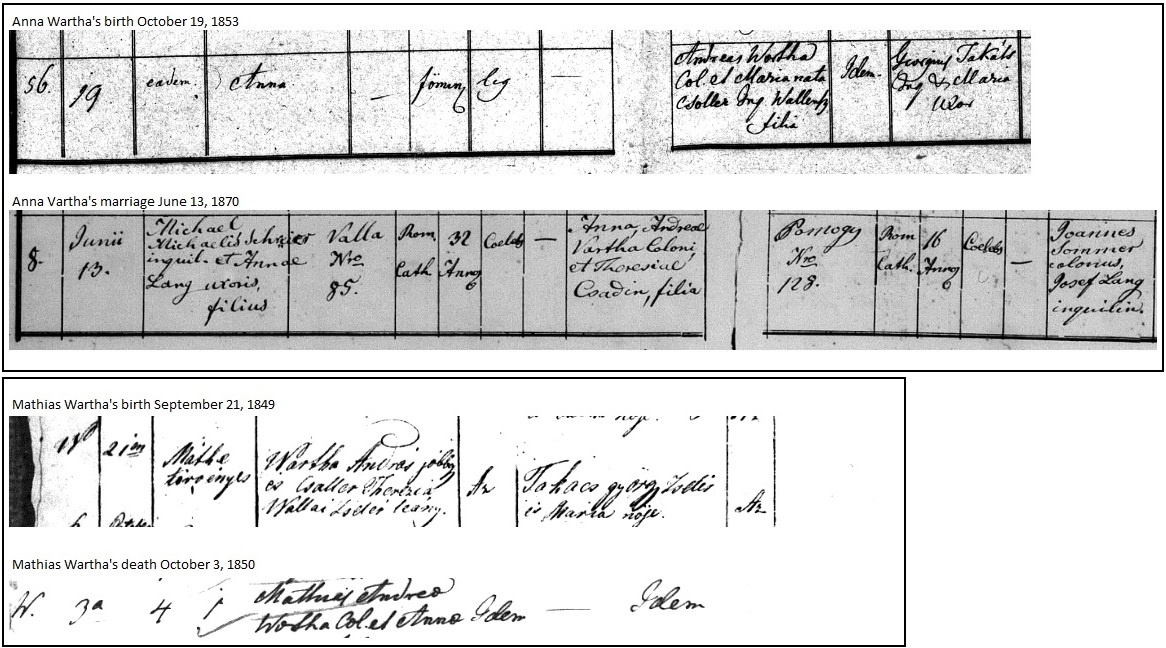 Anna Wartha's birth October 19, 1853
56. 19 eadem. Anna — fömin leg —
Andreas Wortha
Col. et Maria nata
Csoller Inq Wallens
filia
Idem.
Georgius Takáts
Inq & Maria
Uxor
Anna Vartha's marriage June 13, 1870
8.
Junii
13.
Michael
Michaelis Schreier
inquil. et Annae
Lang uxoris,
filius
Valla
Nro
85.
Rom
Cath.
32
Anno
Coelebs
—
Anna, Andreae
Vartha Coloni,
et Theresiae
Csadin, filia
Pomogy
Nro
128.
Rom
Cath.
16
Anno
Coelebs
—
Joannes
Sommer
colonus,
Josef Lang
inquilin.
Mathias Wartha's birth September 21, 1849
21
Máthe
törvényes
Wartha András jobbgy
és Csaller Therézia
Wallai Zsellér leány.
Az
Takács györgy Zsellér
és Maria nője.
Az
Mathias Wartha's death October 3, 1850
W. 3a 4 1
Mathias Andrea
Wotha Col. et Anna
Idem — Idem